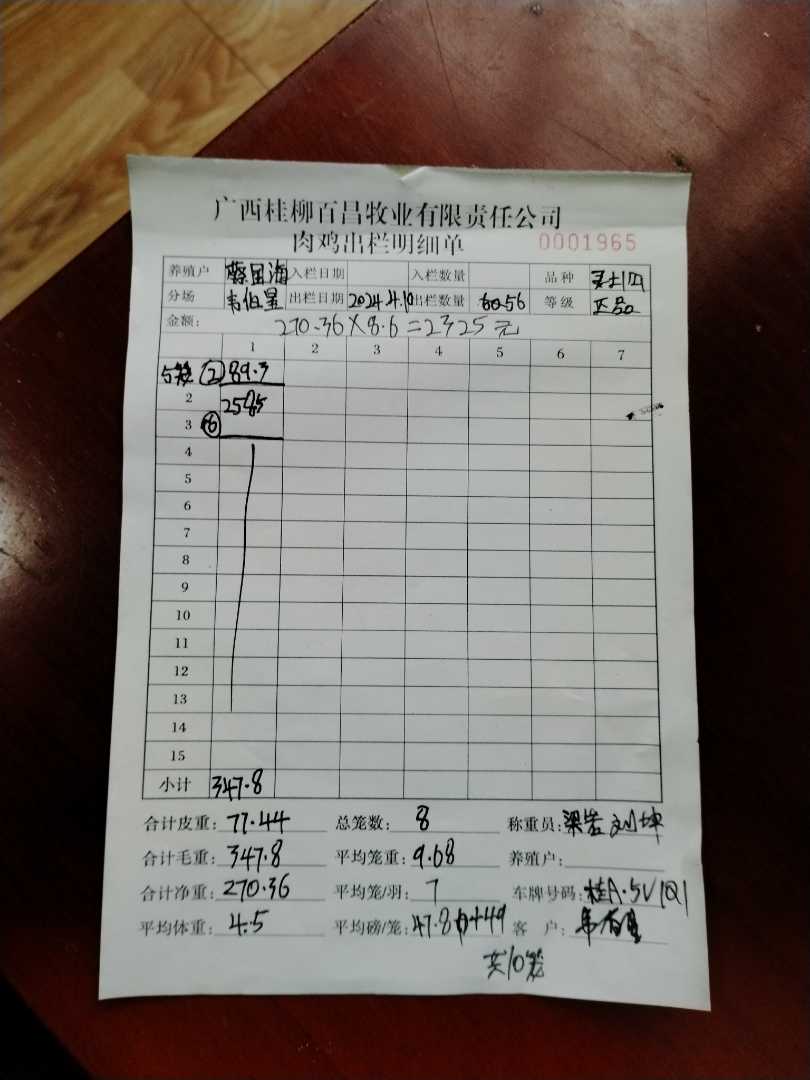 广西桂柳百昌牧业有限责任公司
肉鸡出栏明细单 0001965
养殖户 入栏日期 入栏数量 品种
分场 韦伯星 出栏日期 2024.4.10 出栏数量 56 等级 正品
金额: 270.36×8.6=2325元
1 2 3 4 5 6 7
② 89.3
2 258.5
3 ⑥
4
5
6
7
8
9
10
11
12
13
14
15
小计 347.8
合计皮重: 77.44 总笼数: 8 称重员: 梁岩 刘坤
合计毛重: 347.8 平均笼重: 9.68 养殖户:
合计净重: 270.36 平均笼/羽: 7 车牌号码: 桂A·5V1Q1
平均体重: 4.5 平均磅/笼: 47.8 客户:
共10笼